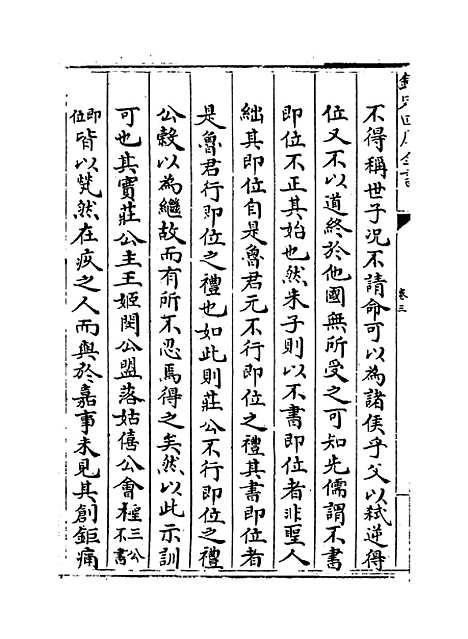 欽定四庫全書
卷三
不得稱世子况不請命可以為諸侯乎父以弑逆得
位又不以道終於他國無所受之可知先儒謂不書
即位不正其始也然朱子則以不書即位者非聖人
絀其即位自是魯君元不行即位之禮其書即位者
是魯君行即位之禮也如此則莊公不行即位之禮
公榖以為繼故而有所不忍焉得之矣然以此示訓
可也其實莊公主王姬閔公盟落姑僖公會檉三公不書
即位皆以煢然在疚之人而與於嘉事未見其創鉅痛